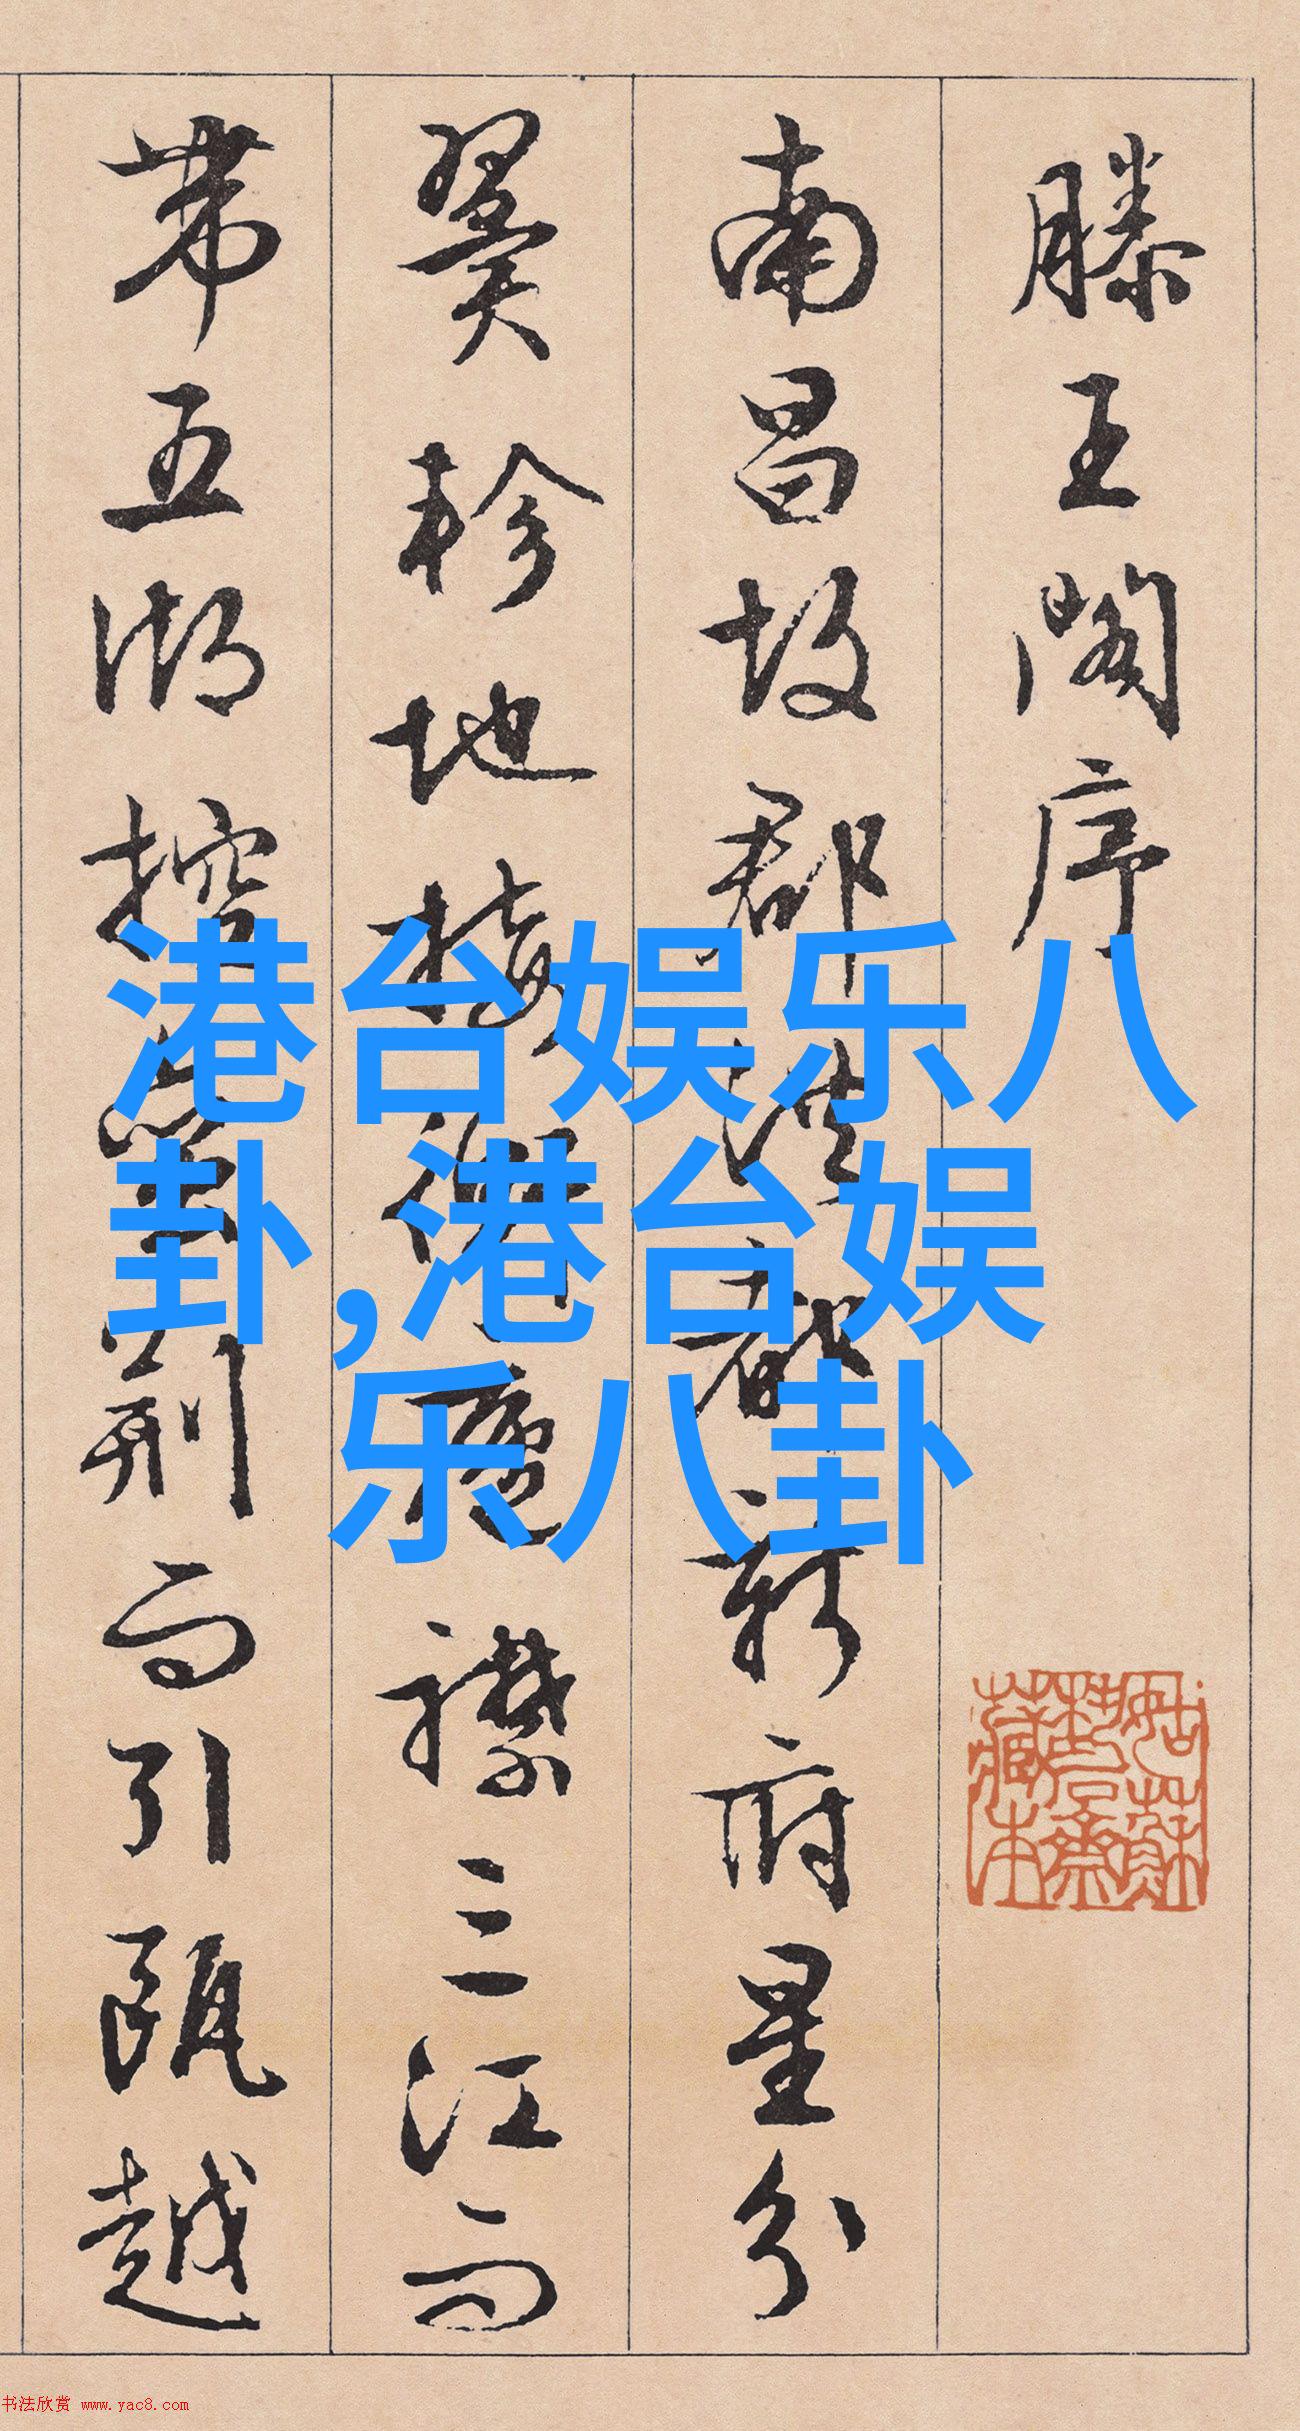 滕王閣序
南昌故郡洪都新府星分
翼軫地接衡廬襟三江而
帶五湖控蠻荆而引甌越
港台娱乐八
卦,港台娱
乐八卦
姑蘇
齋
藏本
书法欣赏 www.yac8.com